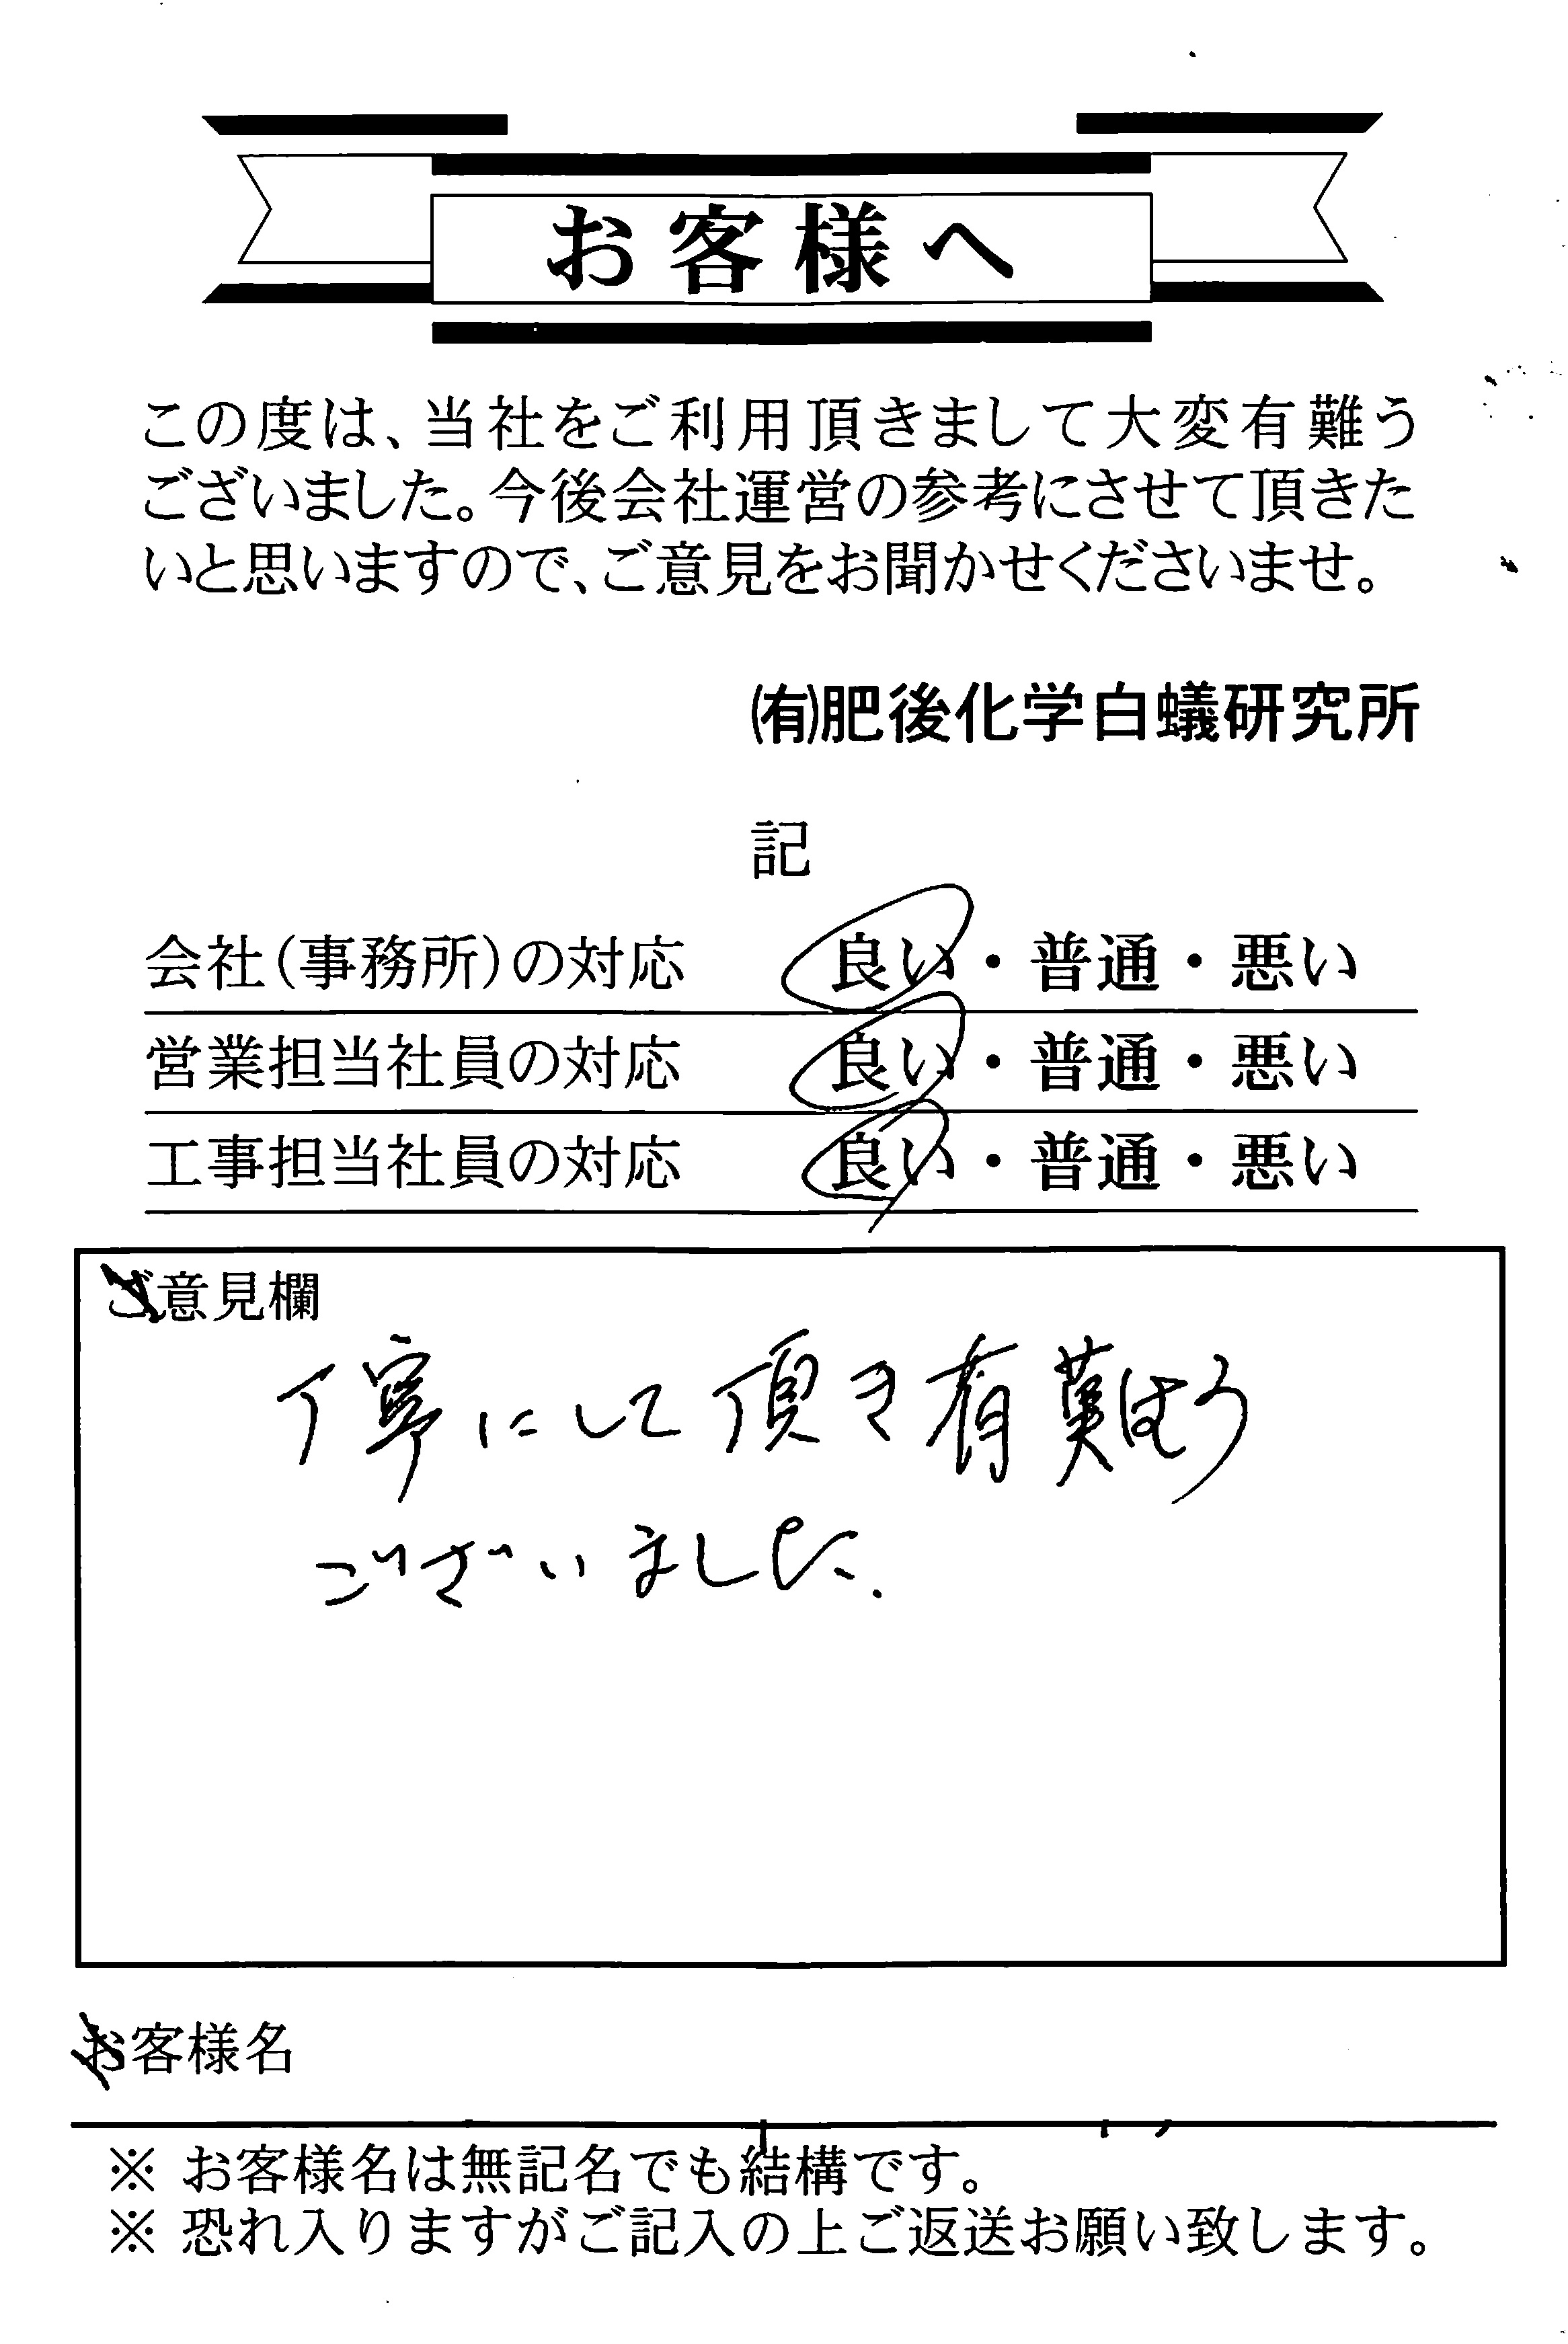 お客様へ
この度は、当社をご利用頂きまして大変有難う
ございました。今後会社運営の参考にさせて頂きた
いと思いますので、ご意見をお聞かせくださいませ。
㈲肥後化学白蟻研究所
記
会社(事務所)の対応 良い・普通・悪い
営業担当社員の対応 良い・普通・悪い
工事担当社員の対応 良い・普通・悪い
ご意見欄
丁寧にして頂き有難う
ございました.
お客様名
※ お客様名は無記名でも結構です。
※ 恐れ入りますがご記入の上ご返送お願い致します。